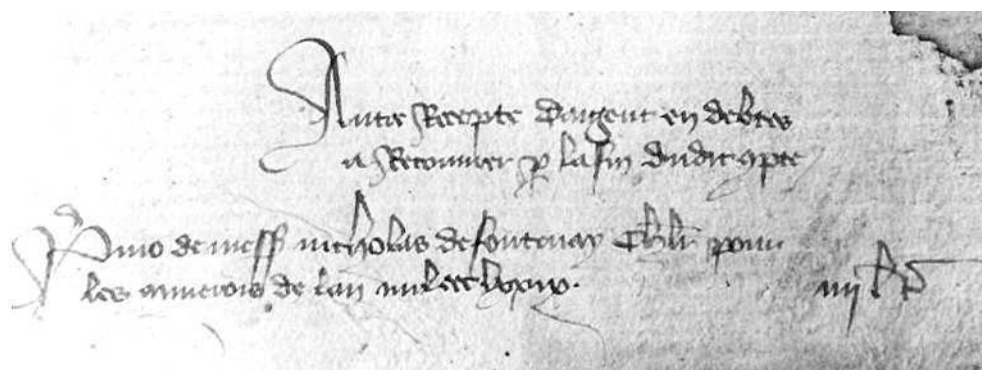 Autre Recepte dargent en debtes
a Recouvrer p la fin dudit compte
Primo de mess nicholas de fontenay chlr pour
les de lan mil ccc iiij lt p